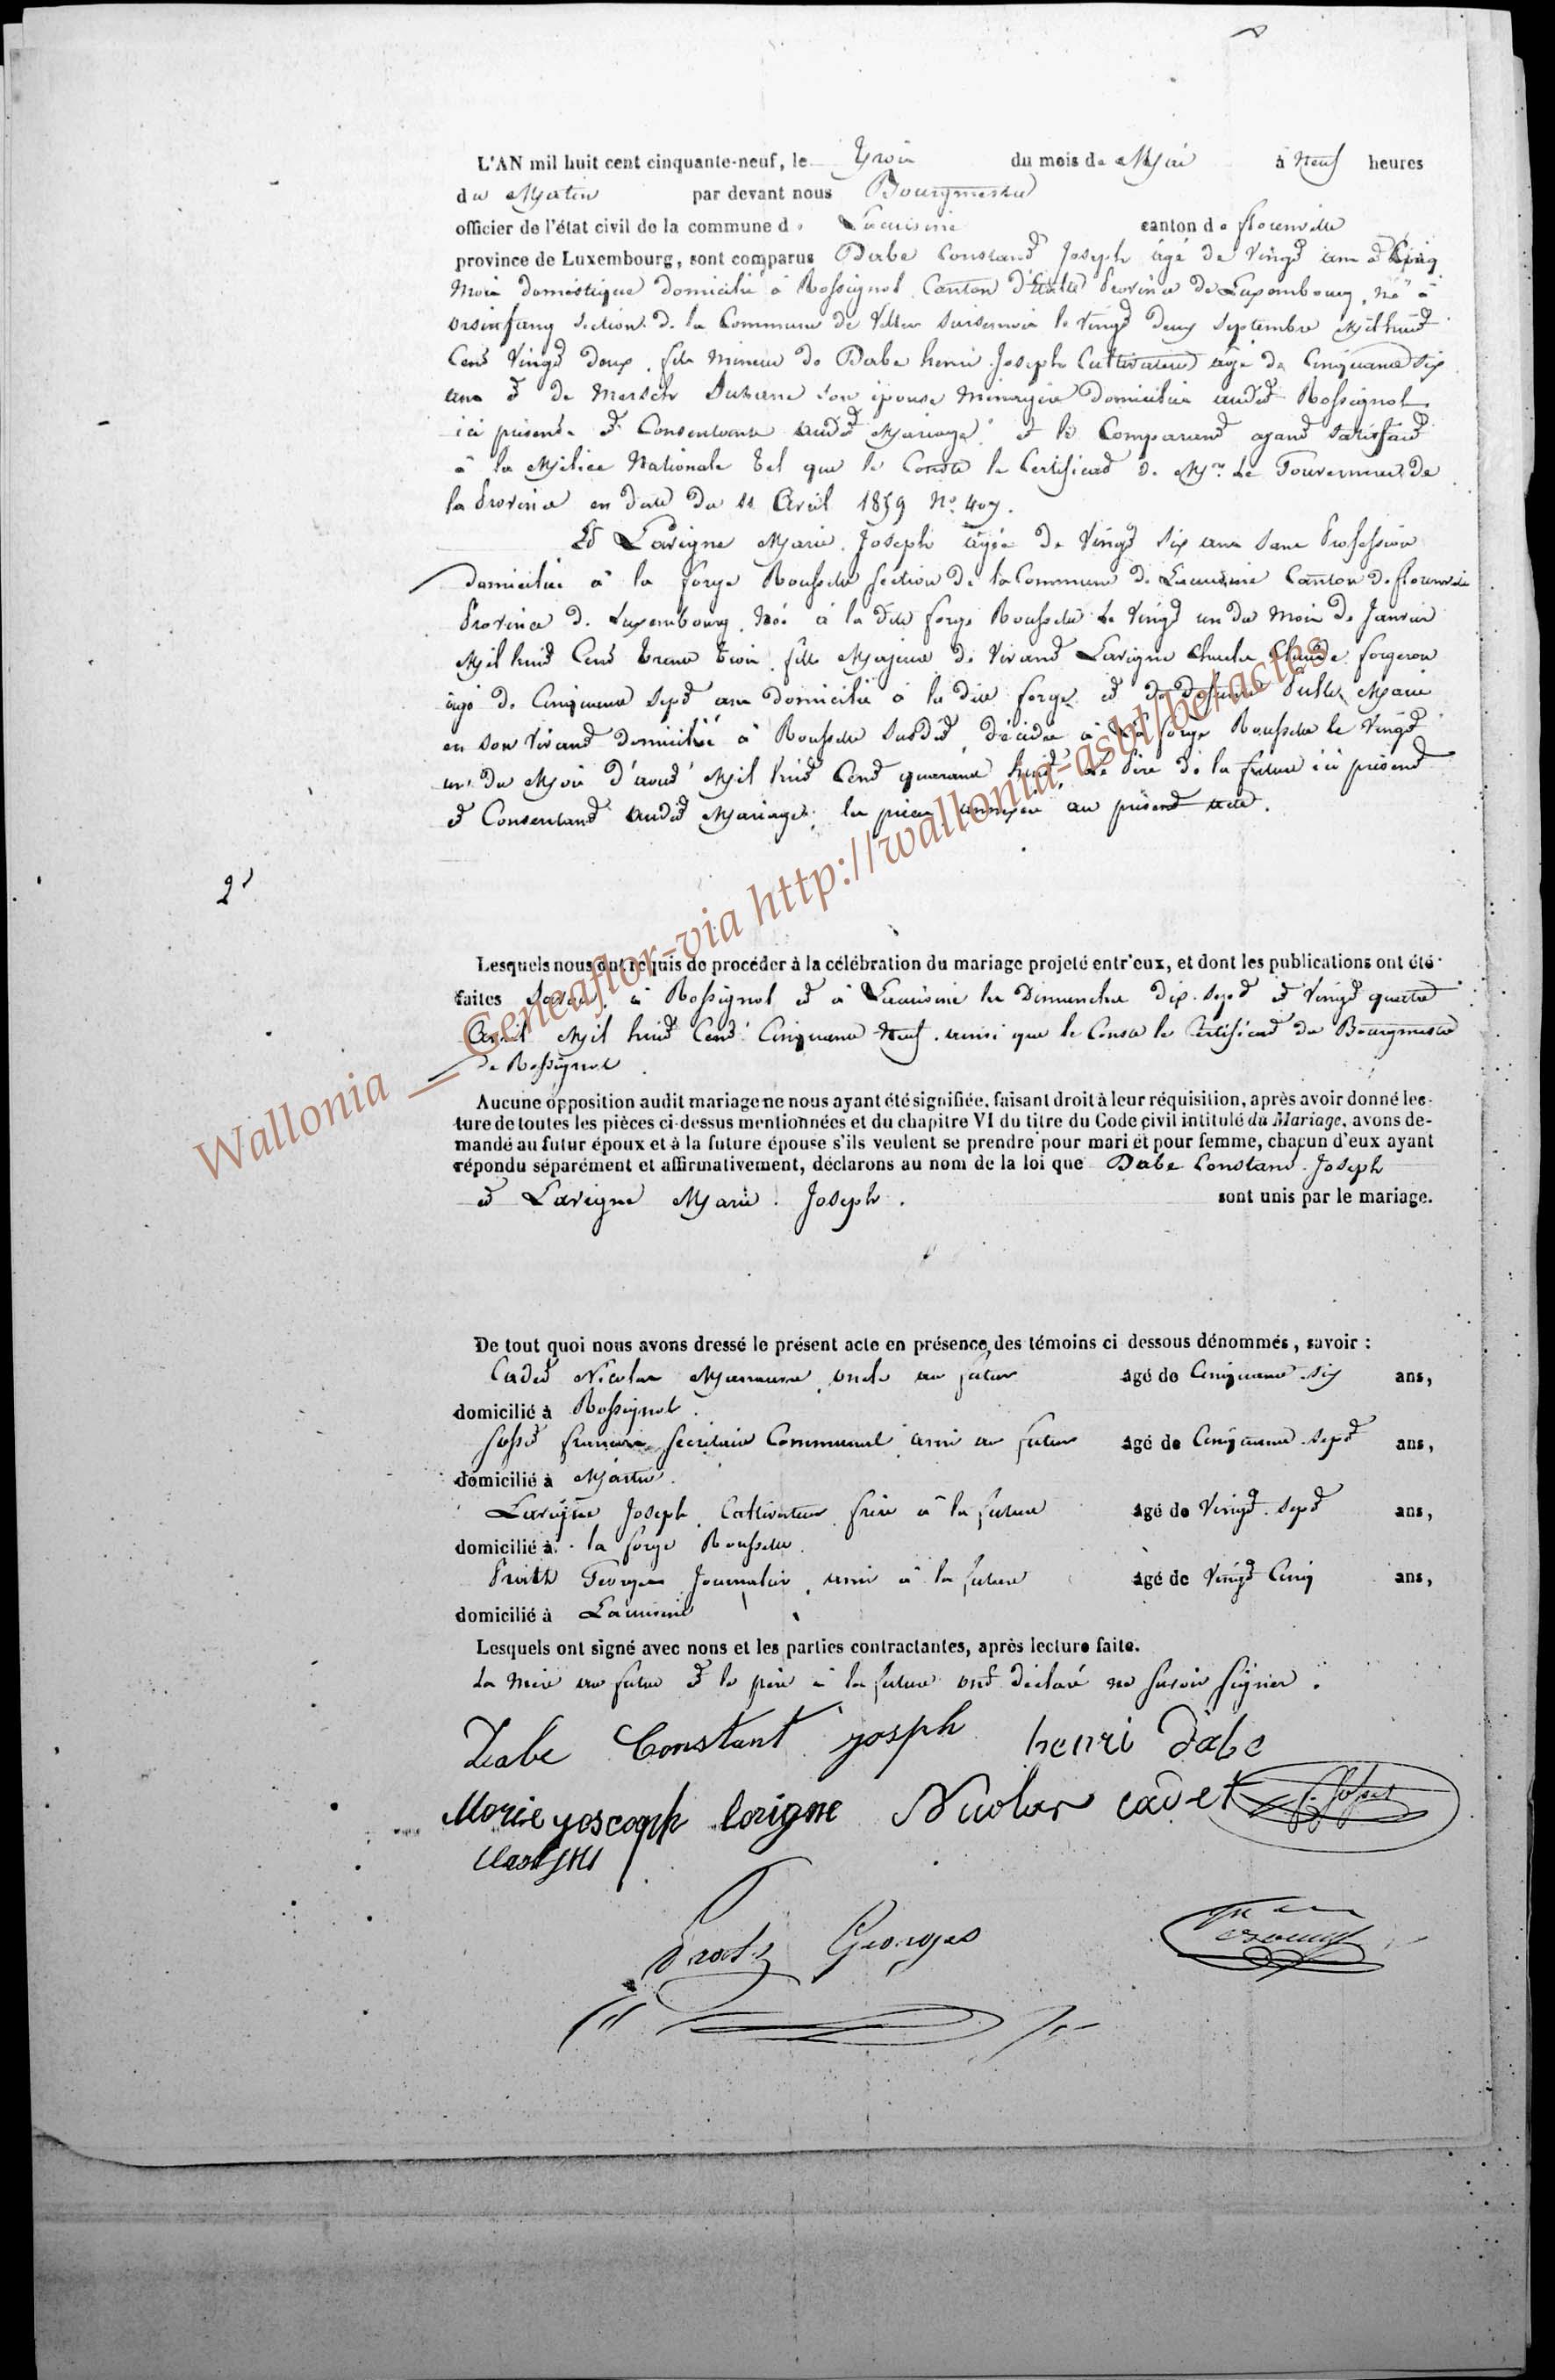 L'AN mil huit cent cinquante-neuf, le Trois du mois de Mai à Neuf heures
du Matin par devant nous Bourgmestre
officier de l'état civil de la commune de Lacuisine canton de florenville
province de Luxembourg, sont comparus Dabe Constant Joseph âgé de Vingt ans et Cinq
Mois domestique domicilié à Rossignol Canton d'Etalle Province de Luxembourg, né à
orsinfaing section de la Commune de Villers sursemois le Vingt deux Septembre Mil huit
Cent Vingt deux, fils Mineur de Dabe henri Joseph Cultivateur âgé de Cinquante Six
ans et de Mersch Suzanne son épouse Ménagère domiciliés audit Rossignol
ici présents et Consentants audit Mariage et le Comparant ayant Satisfait
à la Milice Nationale tel que le Conste le Certificat de Mr. Le Gouverneur de
la Province en date du 11 Avril 1859 No. 407.
Et Lavigne Marie Joseph âgée de Vingt Six ans Sans Profession
domiciliée à la forge Roussette Section de la Commune de Lacuisine Canton de florenville
Province de Luxembourg, Née à la dite forge Roussette le Vingt un du Mois de Janvier
Mil huit Cent Trente Trois, fille Majeure de Vivant Lavigne Charles Claude forgeron
âgé de Cinquante Sept ans domicilié à la dite forge et de défunte Marie
en son Vivant domiciliée à Roussette Susdit, décédée à la forge Roussette le Vingt
un du Mois d'août Mil huit Cent quarante huit, Le Père de la future ici présent
et Consentant audit Mariage, les pièces annexées au présent acte.
2
Lesquels nous ont requis de procéder à la célébration du mariage projeté entr'eux, et dont les publications ont été
faites Savoir, à Rossignol et à Lacuisine les Dimanches dix-Sept et Vingt quatre
Avril Mil huit Cent Cinquante Neuf, ainsi que le Conste le Certificat du Bourgmestre
de Rossignol
Aucune opposition audit mariage ne nous ayant été signifiée, faisant droit à leur réquisition, après avoir donné lec-
ture de toutes les pièces ci-dessus mentionnées et du chapitre VI du titre du Code civil intitulé du Mariage, avons de-
mandé au futur époux et à la future épouse s'ils veulent se prendre pour mari et pour femme, chacun d'eux ayant
répondu séparément et affirmativement, déclarons au nom de la loi que Dabe Constant Joseph
et Lavigne Marie Joseph. sont unis par le mariage.
De tout quoi nous avons dressé le présent acte en présence des témoins ci dessous dénommés, savoir :
Cadet Nicolas oncle au futur âgé de Cinquante Six ans,
domicilié à Rossignol.
francois Secrétaire Communal ami au futur âgé de Cinquante Sept ans,
domicilié à
Lavigne Joseph, Cultivateur, frère à la future âgé de Vingt Sept ans,
domicilié à la forge Roussette
Georges Journalier, ami à la future âgé de Vingt Cinq ans,
domicilié à Lacuisine
Lesquels ont signé avec nous et les parties contractantes, après lecture faite.
La Mère au futur et le père à la future ont déclaré ne savoir signer.
Dabe Constant joseph henri dabe
Marie yoscoqph lavigne Nicolas cadet
Georges
Wallonia __ Geneaflor-via http://wallonia-asbl/betactes